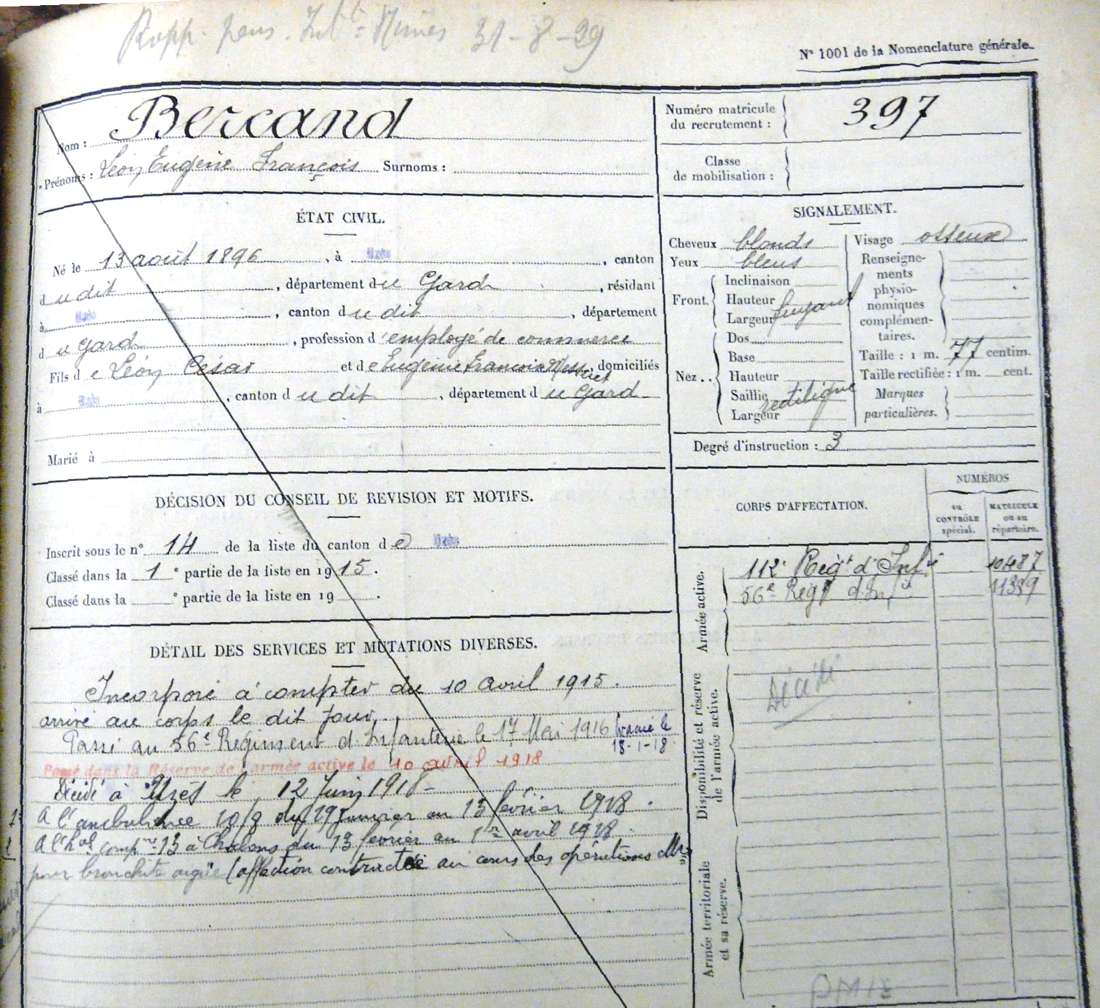 Rapp. pens. Inf. Nîmes 31-8-29
N° 1001 de la Nomenclature générale.
Nom : Bercand
Prénoms : Léon Eugène François Surnoms :
Numéro matricule du recrutement : 397
Classe de mobilisation :
ÉTAT CIVIL.
Né le 13 août 1896, à Uzès, canton
du dit, département du Gard, résidant
à Uzès, canton du dit, département
du Gard, profession d'employé de commerce
Fils de Léon César et de Eugénie Francoise, domiciliés
à Uzès, canton du dit, département du Gard
Marié à
SIGNALEMENT.
Cheveux blonds
Yeux bleus
Front.
Inclinaison
Hauteur
Largeur
fuyant
Nez..
Dos
Base
Hauteur
Saillie
Largeur
rectiligne
Visage osseux
Renseigne-
ments
physio-
nomiques
complémen-
taires.
Taille : 1 m. 77 centim.
Taille rectifiée : 1 m. cent.
Marques
particulières.
Degré d'instruction : 3
DÉCISION DU CONSEIL DE REVISION ET MOTIFS.
Inscrit sous le n° 14 de la liste du canton de Uzès
Classé dans la 1e partie de la liste en 1915.
Classé dans la e partie de la liste en 19 .
CORPS D'AFFECTATION.
NUMÉROS
au
CONTRÔLE
spécial.
MATRICULE
ou au
répertoire.
Armée active.
112e Régt d'Infie 10487
56e Régt d'Infie 11389
Disponibilité et réserve
de l'armée active.
Décédé
Armée territoriale
et sa réserve.
DÉTAIL DES SERVICES ET MUTATIONS DIVERSES.
Incorporé à compter du 10 avril 1915.
arrivé au corps le dit jour,
Passé au 56e Régiment d'Infanterie le 17 Mai 1916 le
18-1-18.
Passé dans la Réserve de l'armée active le 10 avril 1918
Décédé à Uzès le 12 Juin 1918-
A l'ambulance 10/8 du 19 Janvier au 13 février 1918.
A l'hôl compre 13 à Chalons du 13 février au 1er avril 1918.
pour bronchite aigüe (affection contractée au cours des opérations